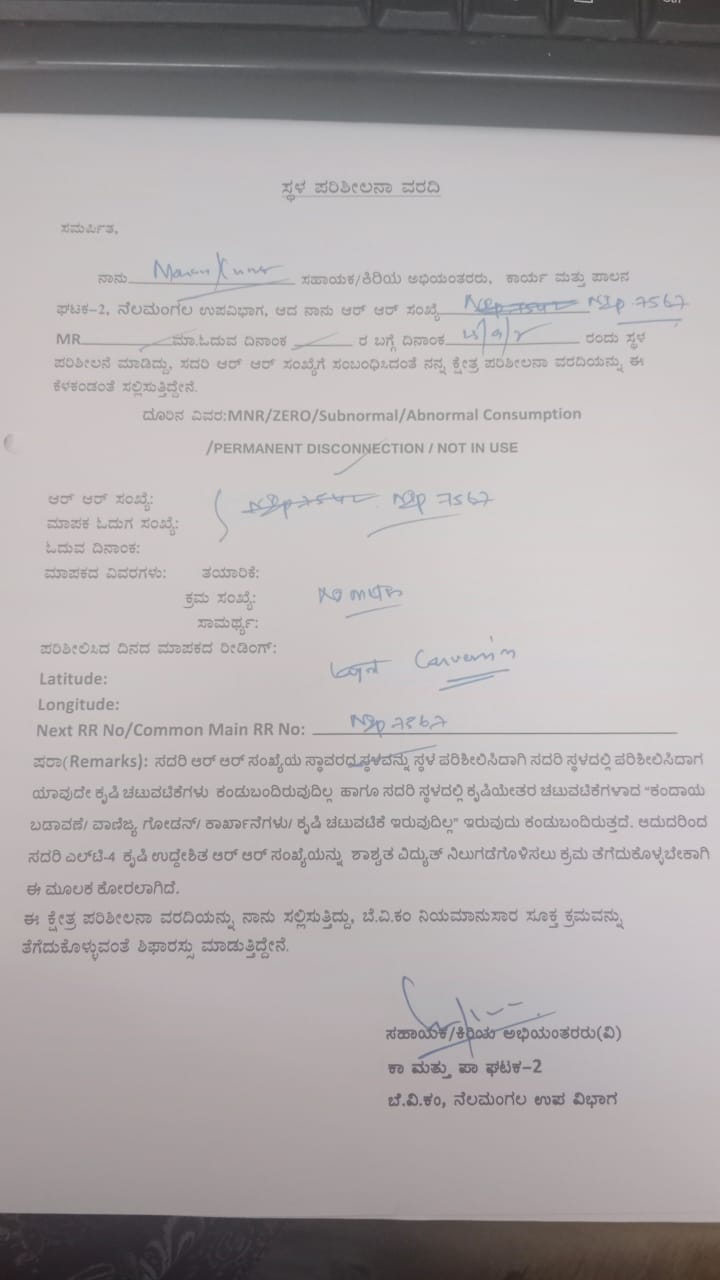 ಸ್ಥಳ ಪರಿಶೀಲನಾ ವರದಿ
ಸಮರ್ಪಿತ,
ನಾನು Kumar ಸಹಾಯಕ/ಕಿರಿಯ ಅಭಿಯಂತರರು, ಕಾರ್ಯ ಮತ್ತು ಪಾಲನ
ಘಟಕ-2, ನೆಲಮಂಗಲ ಉಪವಿಭಾಗ, ಆದ ನಾನು ಆರ್ ಆರ್ ಸಂಖ್ಯೆ 7567
MR ಮಾ.ಓದುವ ದಿನಾಂಕ ರ ಬಗ್ಗೆ ದಿನಾಂಕ ರಂದು ಸ್ಥಳ
ಪರಿಶೀಲನೆ ಮಾಡಿದ್ದು, ಸದರಿ ಆರ್ ಆರ್ ಸಂಖ್ಯೆಗೆ ಸಂಬಂಧಿಸಿದಂತೆ ನನ್ನ ಕ್ಷೇತ್ರ ಪರಿಶೀಲನಾ ವರದಿಯನ್ನು ಈ
ಕೆಳಕಂಡಂತೆ ಸಲ್ಲಿಸುತ್ತಿದ್ದೇನೆ.
ದೂರಿನ ವಿವರ:MNR/ZERO/Subnormal/Abnormal Consumption
/PERMANENT DISCONNECTION / NOT IN USE
ಆರ್ ಆರ್ ಸಂಖ್ಯೆ: 7567
ಮಾಪಕ ಓದುಗ ಸಂಖ್ಯೆ:
ಓದುವ ದಿನಾಂಕ:
ಮಾಪಕದ ವಿವರಗಳು: ತಯಾರಿಕೆ:
ಕ್ರಮ ಸಂಖ್ಯೆ: No meter
ಸಾಮರ್ಥ್ಯ:
ಪರಿಶೀಲಿಸಿದ ದಿನದ ಮಾಪಕದ ರೀಡಿಂಗ್:
Latitude:
Longitude:
Next RR No/Common Main RR No: 7567
ಷರಾ(Remarks): ಸದರಿ ಆರ್ ಆರ್ ಸಂಖ್ಯೆಯ ಸ್ಥಾವರದ ಸ್ಥಳವನ್ನು ಸ್ಥಳ ಪರಿಶೀಲಿಸಿದಾಗಿ ಸದರಿ ಸ್ಥಳದಲ್ಲಿ ಪರಿಶೀಲಿಸಿದಾಗ
ಯಾವುದೇ ಕೃಷಿ ಚಟುವಟಿಕೆಗಳು ಕಂಡುಬಂದಿರುವುದಿಲ್ಲ ಹಾಗೂ ಸದರಿ ಸ್ಥಳದಲ್ಲಿ ಕೃಷಿಯೇತರ ಚಟುವಟಿಕೆಗಳಾದ "ಕಂದಾಯ
ಬಡಾವಣೆ/ ವಾಣಿಜ್ಯ ಗೋಡನ್/ ಕಾರ್ಖಾನೆಗಳು/ ಕೃಷಿ ಚಟುವಟಿಕೆ ಇರುವುದಿಲ್ಲ" ಇರುವುದು ಕಂಡುಬಂದಿರುತ್ತದೆ. ಆದುದರಿಂದ
ಸದರಿ ಎಲ್‌ಟಿ-4 ಕೃಷಿ ಉದ್ದೇಶಿತ ಆರ್ ಆರ್ ಸಂಖ್ಯೆಯನ್ನು ಶಾಶ್ವತ ವಿದ್ಯುತ್ ನಿಲುಗಡೆಗೊಳಿಸಲು ಕ್ರಮ ತೆಗೆದುಕೊಳ್ಳಬೇಕಾಗಿ
ಈ ಮೂಲಕ ಕೋರಲಾಗಿದೆ.
ಈ ಕ್ಷೇತ್ರ ಪರಿಶೀಲನಾ ವರದಿಯನ್ನು ನಾನು ಸಲ್ಲಿಸುತ್ತಿದ್ದು, ಬೆ.ವಿ.ಕಂ ನಿಯಮಾನುಸಾರ ಸೂಕ್ತ ಕ್ರಮವನ್ನು
ತೆಗೆದುಕೊಳ್ಳುವಂತೆ ಶಿಫಾರಸ್ಸು ಮಾಡುತ್ತಿದ್ದೇನೆ.
ಸಹಾಯಕ/ಕಿರಿಯ ಅಭಿಯಂತರರು(ವಿ)
ಕಾ ಮತ್ತು ಪಾ ಘಟಕ-2
ಬೆ.ವಿ.ಕಂ, ನೆಲಮಂಗಲ ಉಪ ವಿಭಾಗ